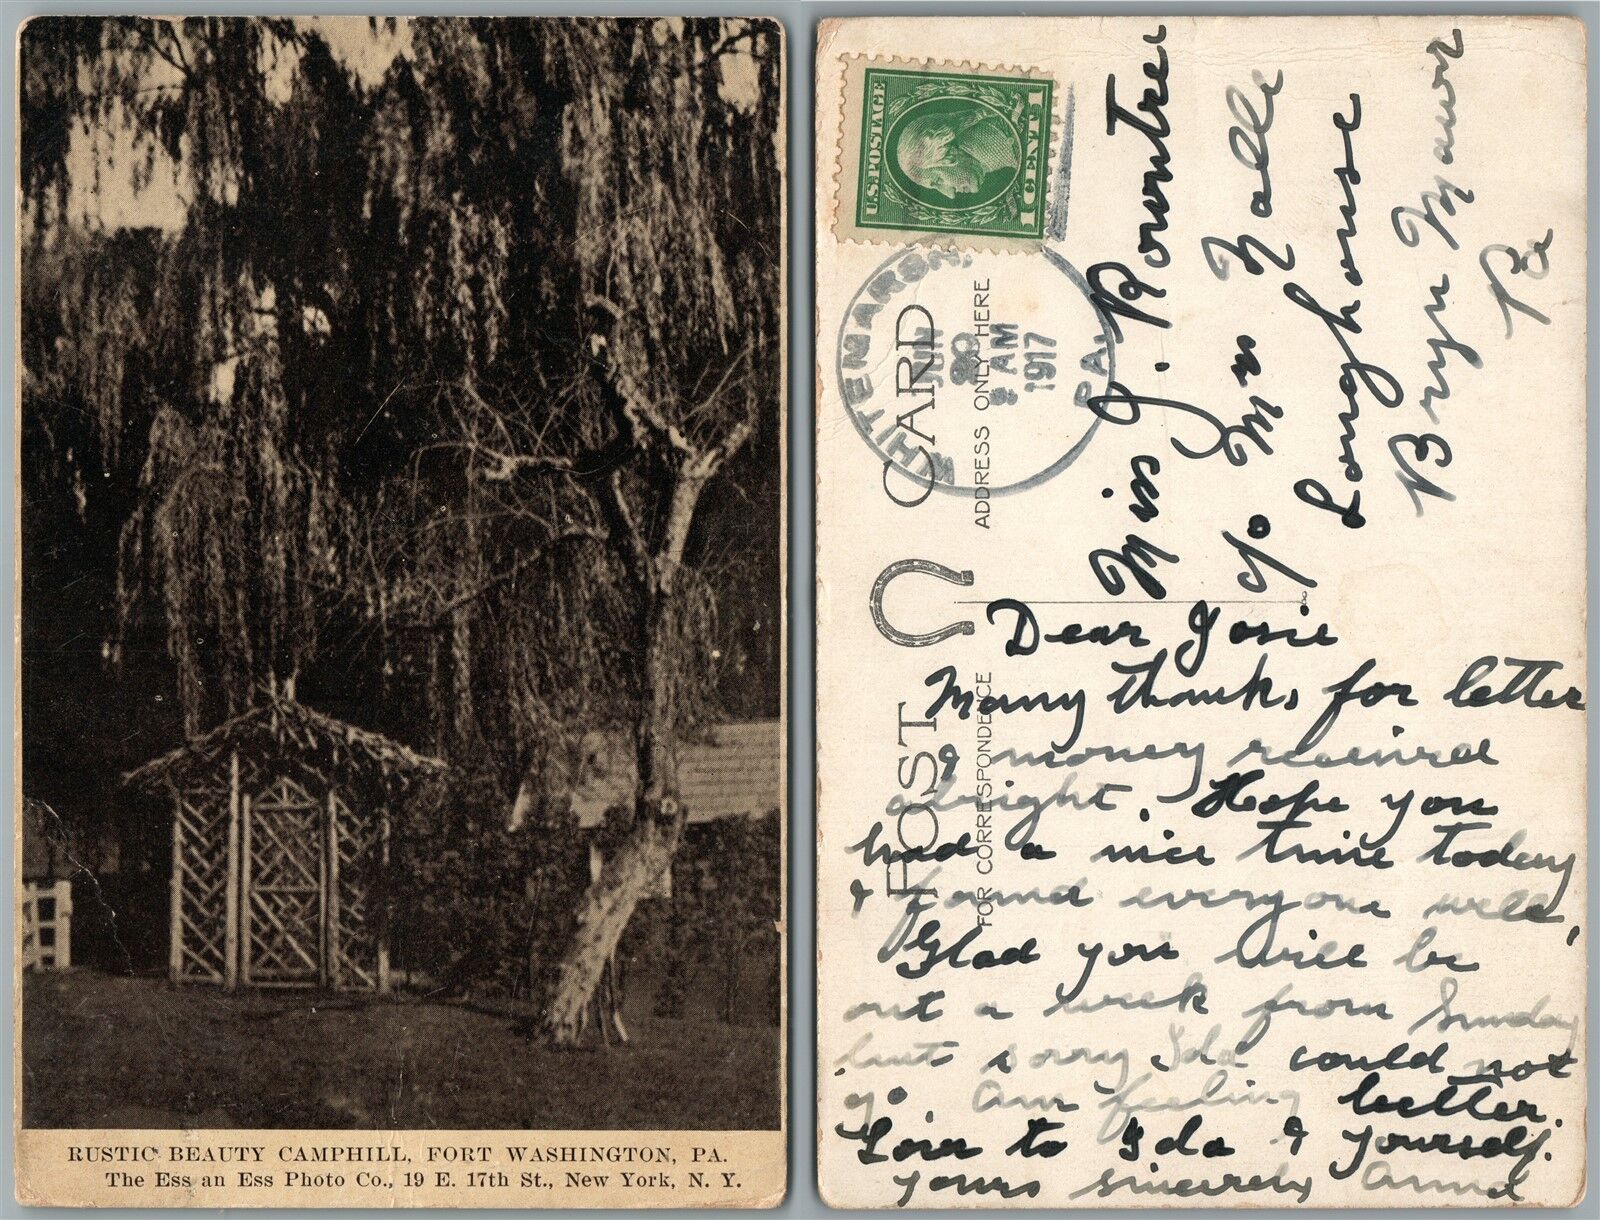 RUSTIC BEAUTY CAMPHILL, FORT WASHINGTON, PA.
The Ess an Ess Photo Co., 19 E. 17th St., New York, N. Y.
U.S. POSTAGE
1 CENT 1
WHITEMARSH
JUN
AM
1917
PA.
POST CARD
FOR CORRESPONDENCE
ADDRESS ONLY HERE
Miss J. Rowntree
c/o Mrs Nalle
Longhouse
Bryn Mawr
Pa
Dear Josie
Many thanks for letter
& money received
alright. Hope you
had a nice time today
& found everyone well,
Glad you will be
out a week from Sunday
but sorry Ida could not
go. Am feeling better.
Love to Ida & yourself.
yours sincerely Anna